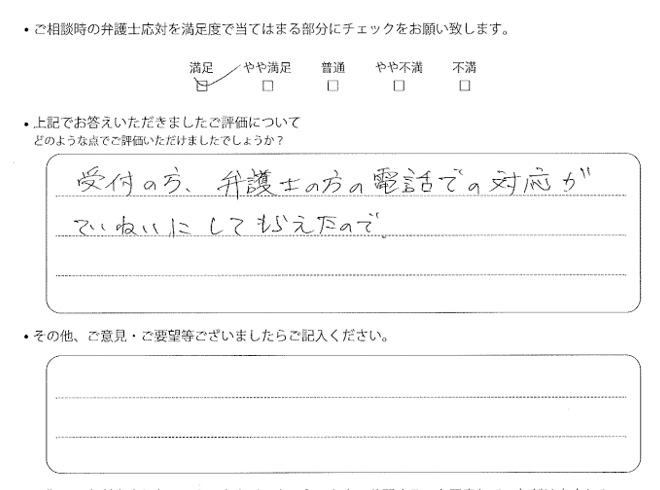 ・ご相談時の弁護士応対を満足度で当てはまる部分にチェックをお願い致します。
満足 やや満足 普通 やや不満 不満
・上記でお答えいただきましたご評価について
どのような点でご評価いただけましたでしょうか？
受付の方、弁護士の方の電話での対応が
ていねいにしてもらえたので。
・その他、ご意見・ご要望等ございましたらご記入ください。